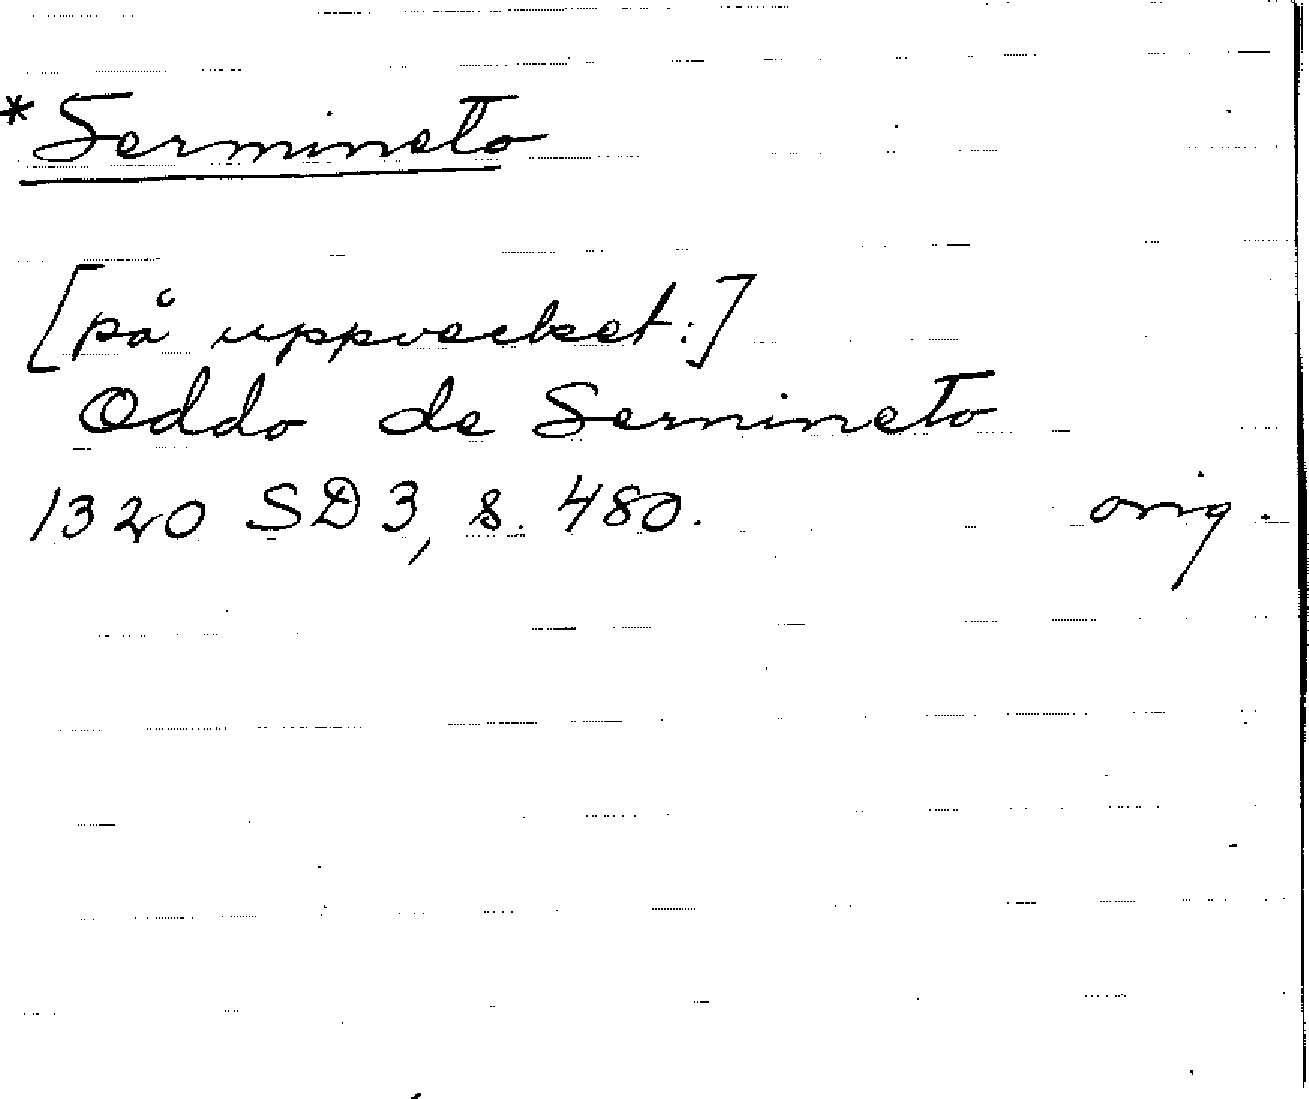 *Sermineto
[på uppvecket:]
Oddo de Sermineto
1320 SD 3, s. 480. orig.